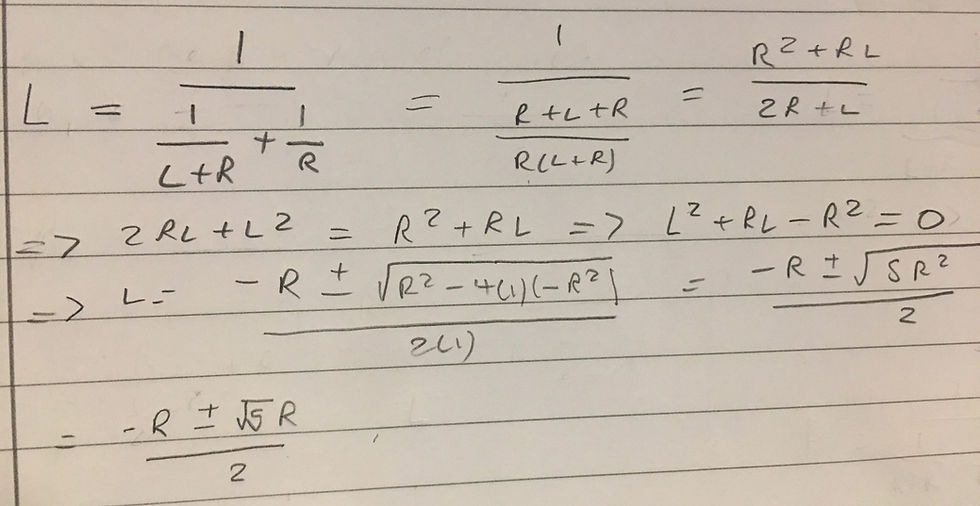 L = 1/(1/(L+R) + 1/R) = 1/((R+L+R)/(R(L+R))) = (R²+RL)/(2R+L)
=> 2RL+L² = R²+RL => L²+RL-R²=0
=> L= (-R ± √(R²-4(1)(-R²)))/(2(1)) = (-R ± √(5R²))/2
= (-R ± √5 R)/2